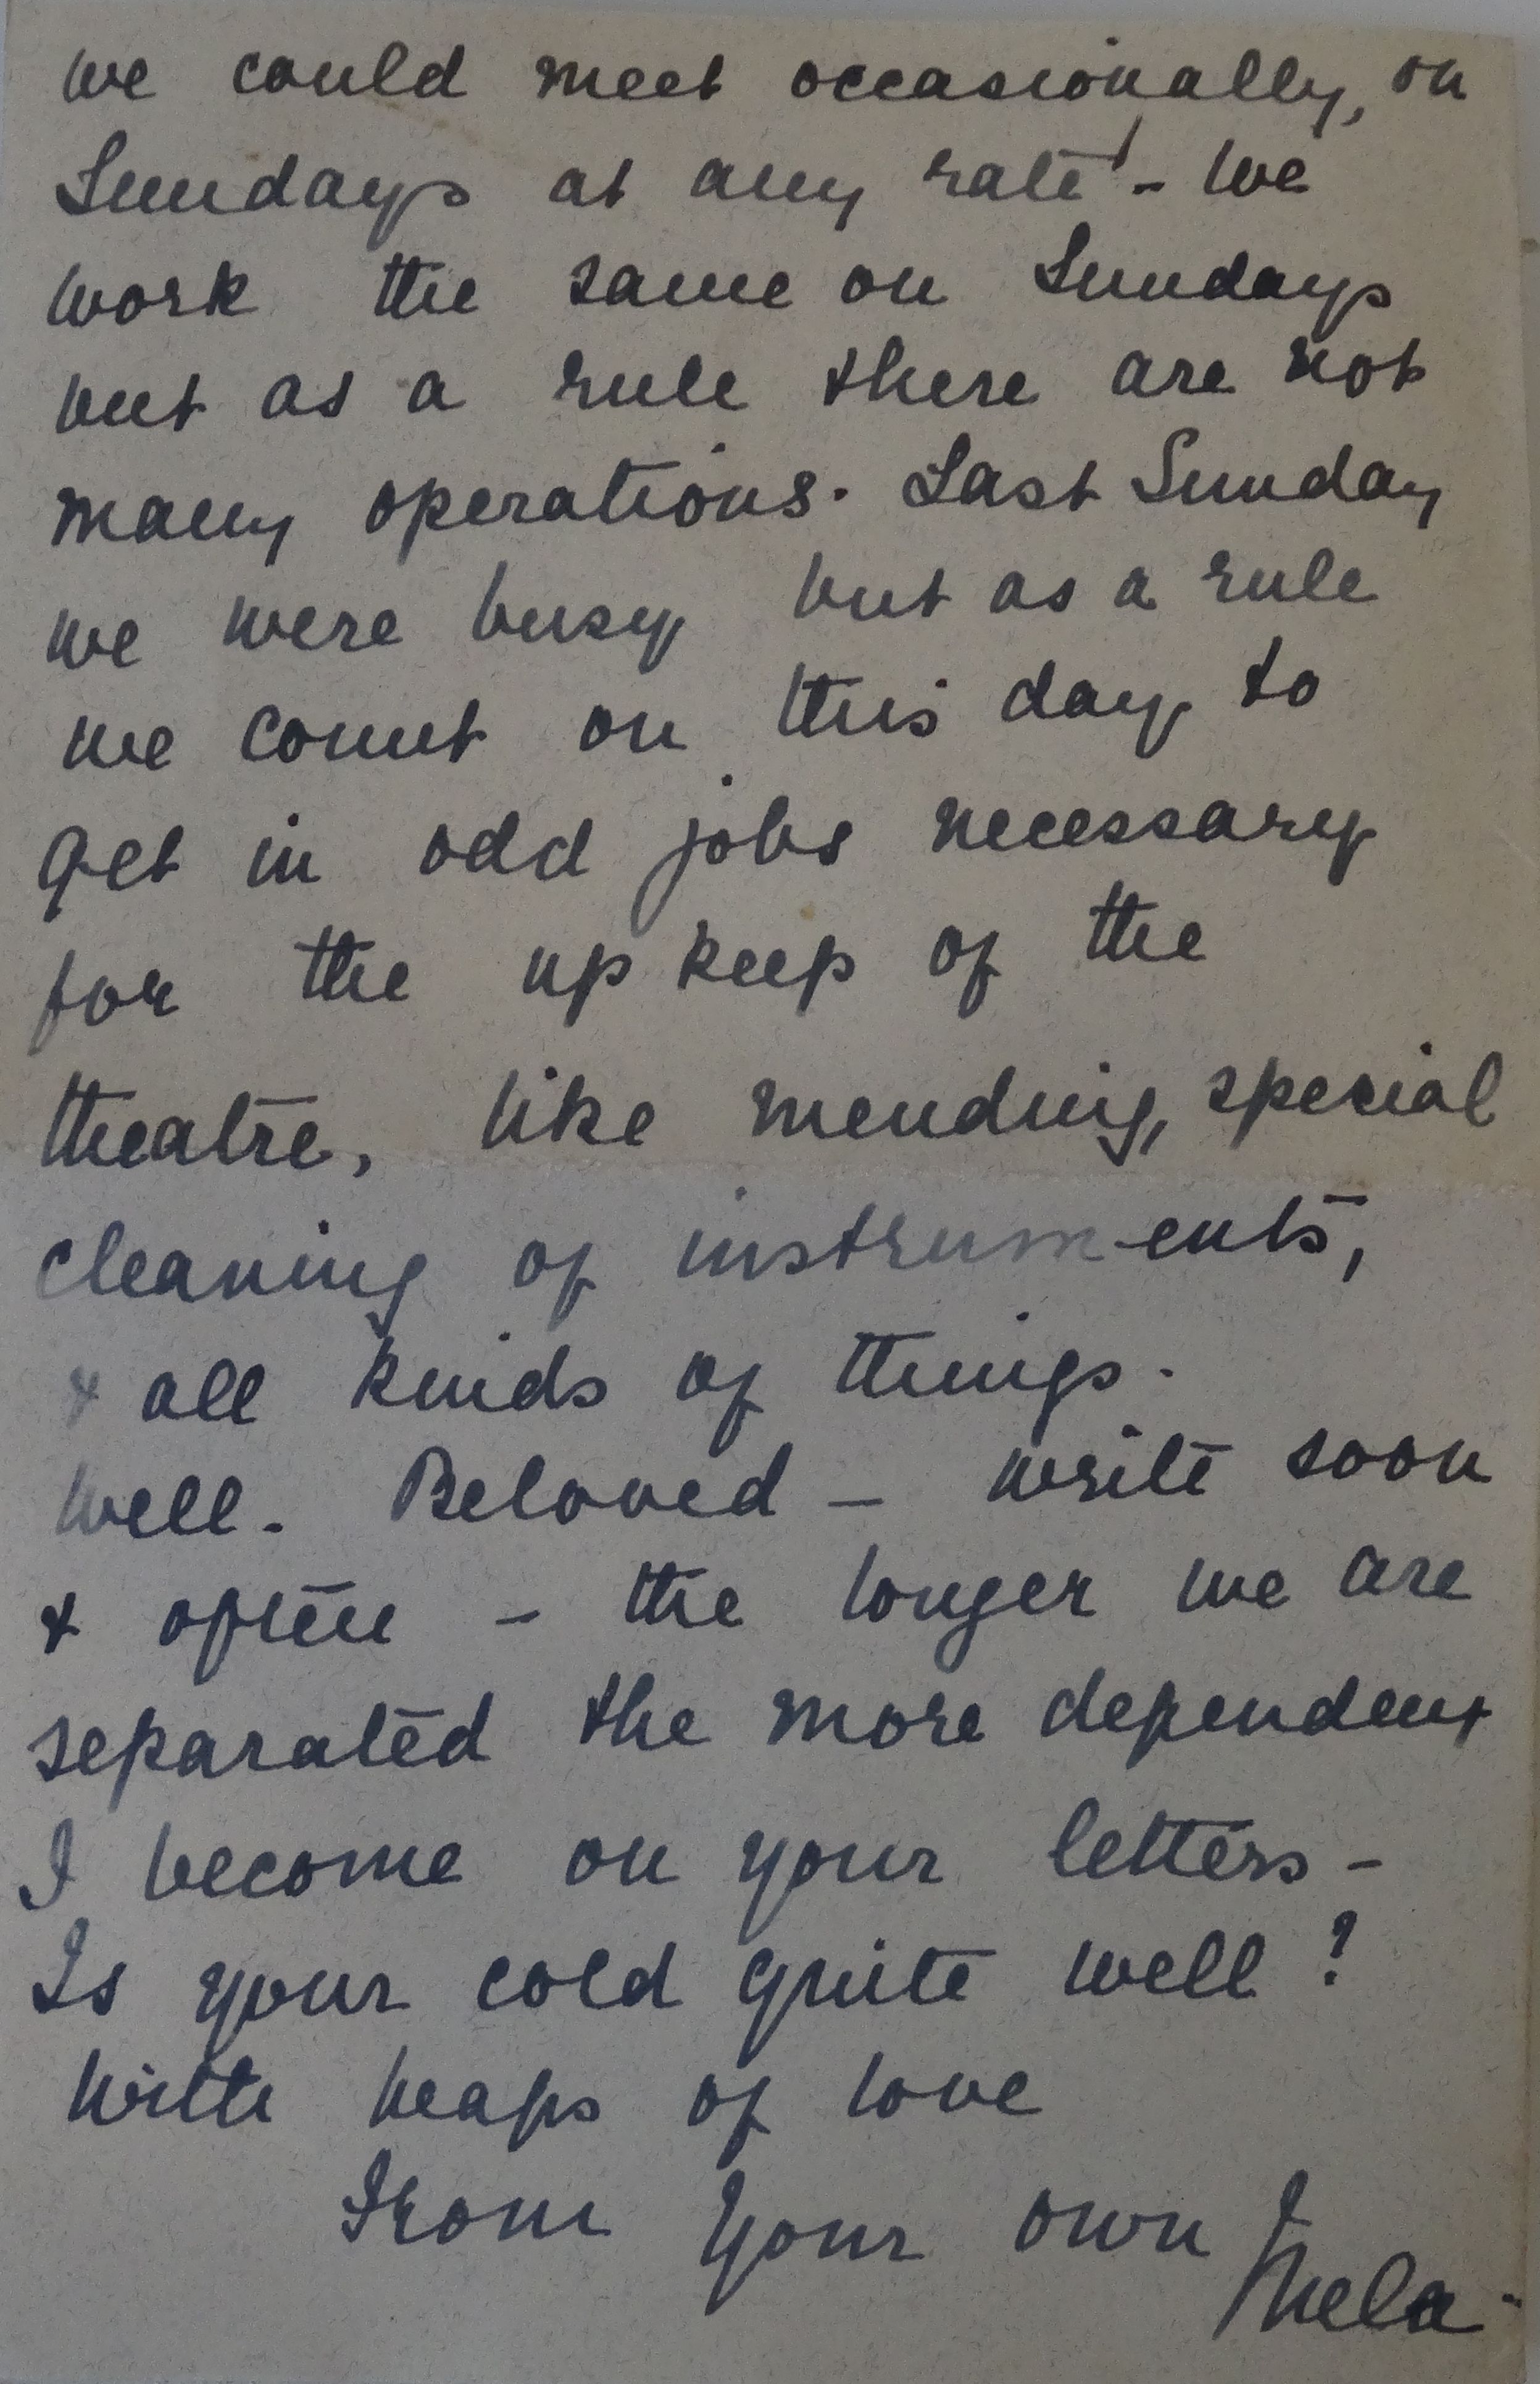 we could meet occasionally, on
Sundays at any rate! - We
work the same on Sundays
but as a rule there are not
many operations. Last Sunday
we were busy but as a rule
we count on this day to
get in odd jobs necessary
for the up keep of the
theatre, like mending, special
cleaning of instruments,
& all kinds of things.
Well. Beloved - write soon
& often - the longer we are
separated the more dependent
I become on your letters -
Is your cold quite well?
With heaps of love
From Your own
Nela